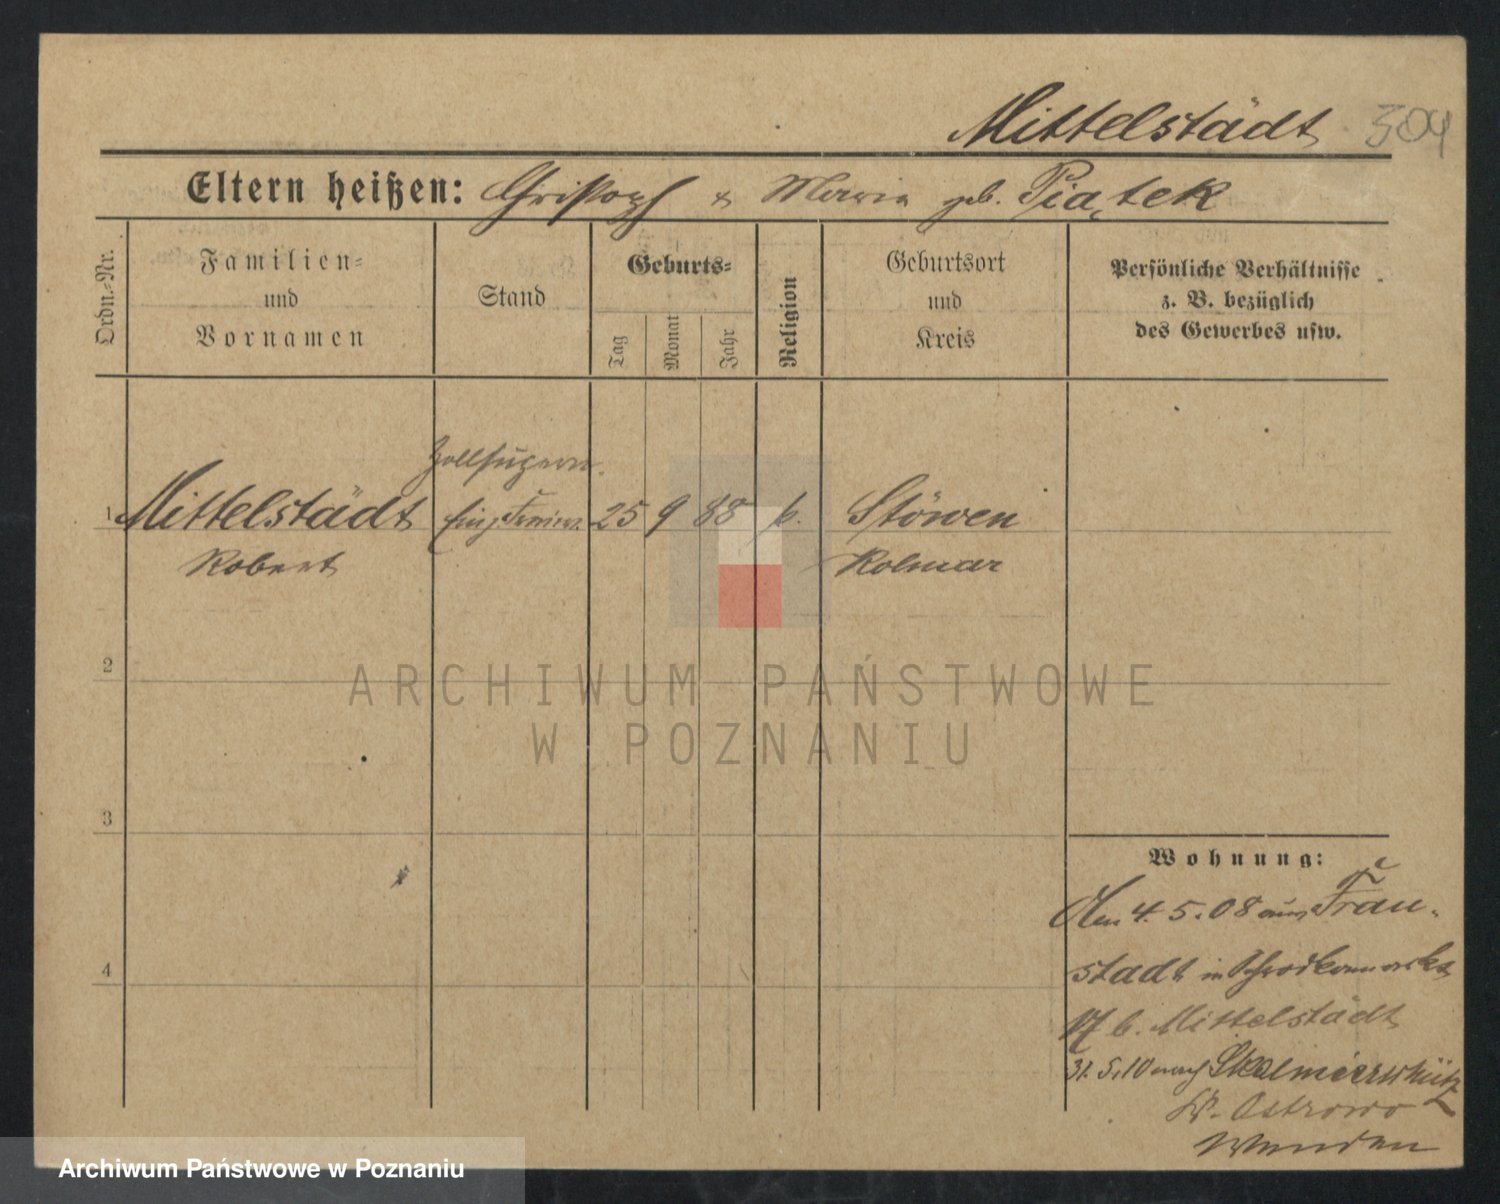 Mittelstädt 304
Eltern heißen: Christoph & Maria geb. Piątek
Ordn.-Nr.
Familien-
und
Vornamen
Stand
Geburts-
Tag
Monat
Jahr
Religion
Geburtsort
und
Kreis
Persönliche Verhältnisse
z. B. bezüglich
des Gewerbes usw.
1 Mittelstädt
Robert
Zollsupern.
Einj. Freiw.
25 9 88 k.
Stöwen
Kolmar
2
3
4
Wohnung:
Den 4.5.08 aus Frau-
stadt in Schrodkamarkt
17 b. Mittelstädt
31.5.10 nach Skalmierschütz
Kr. Ostrowo
Wenden
ARCHIWUM PAŃSTWOWE
W POZNANIU
Archiwum Państwowe w Poznaniu